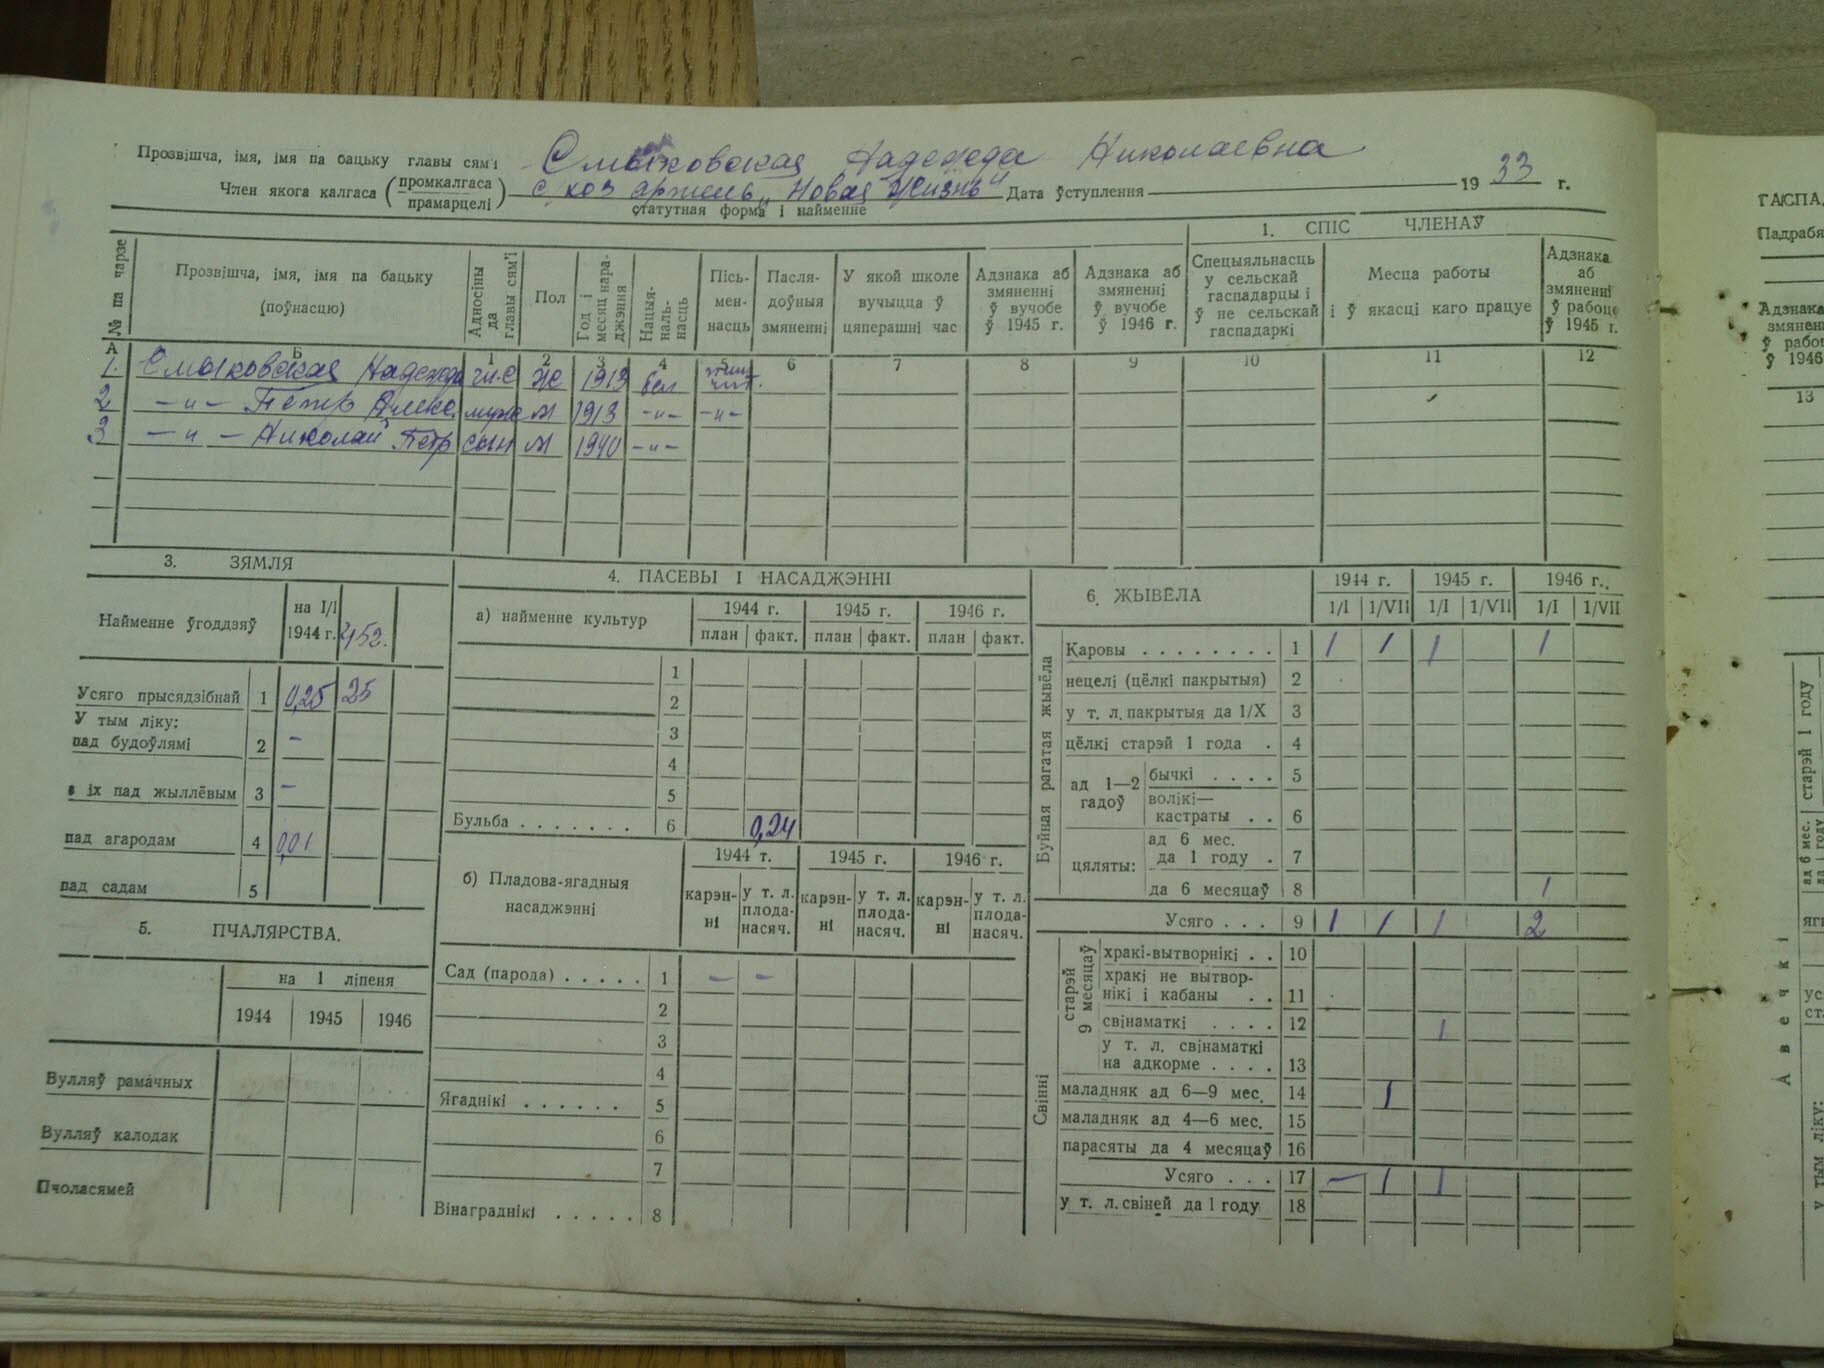 Прозвішча, імя, імя па бацьку главы сям'і Смыковская Надежда Николаевна
Член якога калгаса (промкалгаса прамарцелі) с. хоз артель „Новая Жизнь" Дата ўступлення 19 33 г.
статутная форма і найменне
1. СПІС ЧЛЕНАЎ
№ па чарзе
Прозвішча, імя, імя па бацьку (поўнасцю)
Адносіны да главы сям'і
Пол
Год і месяц нараджэння
Нацыянальнасць
Пісьменнасць
Паслядоўныя змяненні
У якой школе вучыцца ў цяперашні час
Адзнака аб змяненні ў вучобе ў 1945 г.
Адзнака аб змяненні ў вучобе ў 1946 г.
Спецыяльнасць у сельскай гаспадарцы і ў не сельскай гаспадаркі
Месца работы і ў якасці каго працуе
Адзнака аб змяненні ў рабоце ў 1945 г.
А Б 1 2 3 4 5 6 7 8 9 10 11 12
1. Смыковская Надежда Ж 1913 бел
2 –"– Петр Алекс. муж М 1913 –"– –"–
3 –"– Николай Петр сын М 1940 –"–
3. ЗЯМЛЯ
Найменне ўгоддзяў на I/I 1944 г.
Усяго прысядзібнай 1 0,25 25
У тым ліку:
пад будоўлямі 2 –
іх пад жыллёвым 3 –
пад агародам 4 0,01
пад садам 5
5. ПЧАЛЯРСТВА.
на 1 ліпеня
1944 1945 1946
Вулляў рамачных
Вулляў калодак
Пчоласямей
4. ПАСЕВЫ І НАСАДЖЭННІ
а) найменне культур 1944 г. 1945 г. 1946 г.
план факт. план факт. план факт.
1
2
3
4
5
Бульба . . . . . . . 6 0,24
б) Пладова-ягадныя насаджэнні
1944 г. 1945 г. 1946 г.
карэнні у т. л. плоданасяч. карэнні у т. л. плоданасяч. карэнні у т. л. плоданасяч.
Сад (парода) . . . . . 1 – –
2
3
4
Ягаднікі . . . . . . 5
6
7
Вінаграднікі . . . . . 8
6. ЖЫВЁЛА 1944 г. 1945 г. 1946 г.
1/I 1/VII 1/I 1/VII 1/I 1/VII
Буйная рагатая жывёла
Каровы . . . . . . . . 1 1 1 1 1
нецелі (цёлкі пакрытыя) 2
у т. л. пакрытыя да 1/X 3
цёлкі старэй 1 года . 4
ад 1—2 гадоў
бычкі . . . . 5
волікі—кастраты . . 6
цяляты:
ад 6 мес. да 1 году . 7
да 6 месяцаў 8 1
Усяго . . . 9 1 1 1 2
Свінні
старэй 9 месяцаў
хракі-вытворнікі . . 10
хракі не вытворнікі і кабаны . . 11
свінаматкі . . . . 12 1
у т. л. свінаматкі на адкорме . . . . 13
маладняк ад 6—9 мес. 14 1
маладняк ад 4—6 мес. 15
парасяты да 4 месяцаў 16
Усяго . . . 17 – 1 1
у т. л. свіней да 1 году 18
Падрабя
Адзнака
змянен
ў рабо
ў 1946
13
старэй 1 году
ад 6 мес.
да 1 году
Авечкі
У тым ліку: